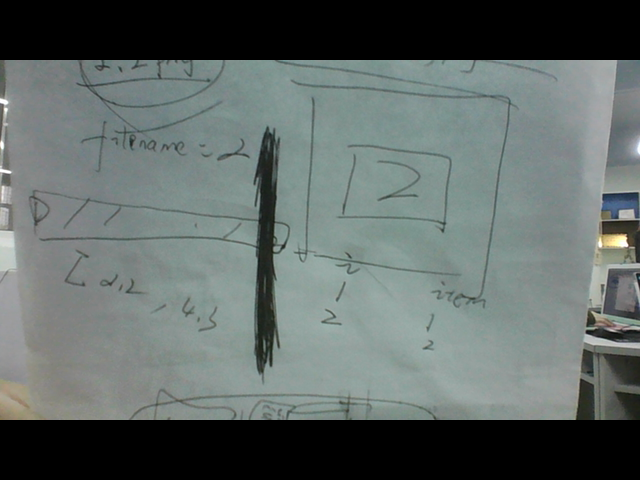 2.2 png
filename = 2
2
D
[ 2.2, 4.3
i
1
2
item
1
2